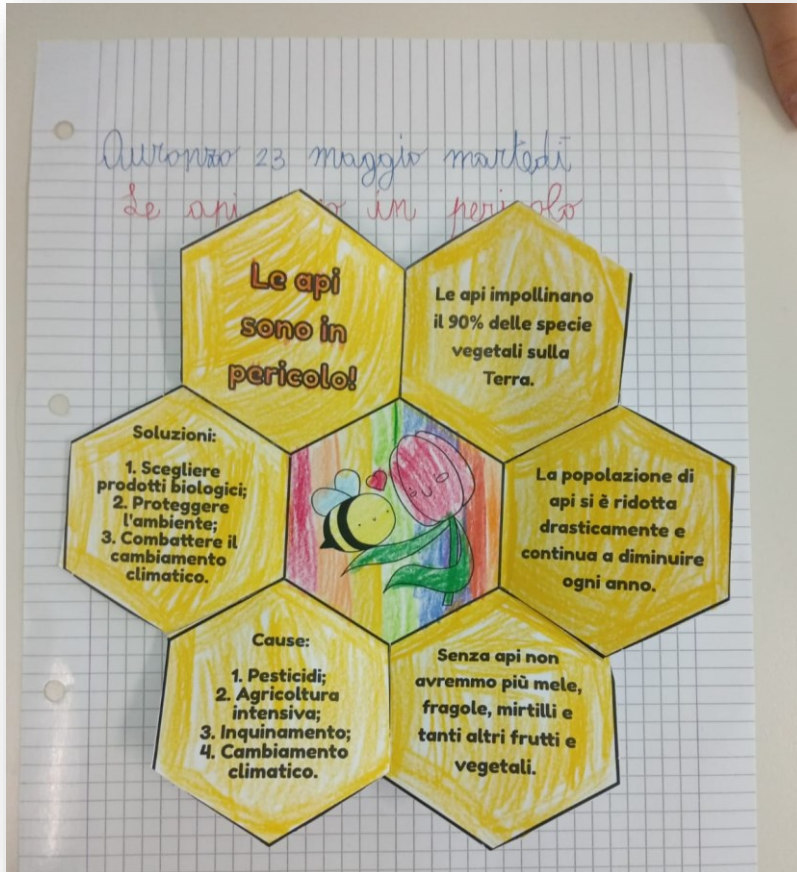 Auronzo 23 maggio martedì
Le api in pericolo
Le api
sono in
pericolo!
Le api impollinano
il 90% delle specie
vegetali sulla
Terra.
La popolazione di
api si è ridotta
drasticamente e
continua a diminuire
ogni anno.
Senza api non
avremmo più mele,
fragole, mirtilli e
tanti altri frutti e
vegetali.
Cause:
1. Pesticidi;
2. Agricoltura
intensiva;
3. Inquinamento;
4. Cambiamento
climatico.
Soluzioni:
1. Scegliere
prodotti biologici;
2. Proteggere
l'ambiente;
3. Combattere il
cambiamento
climatico.